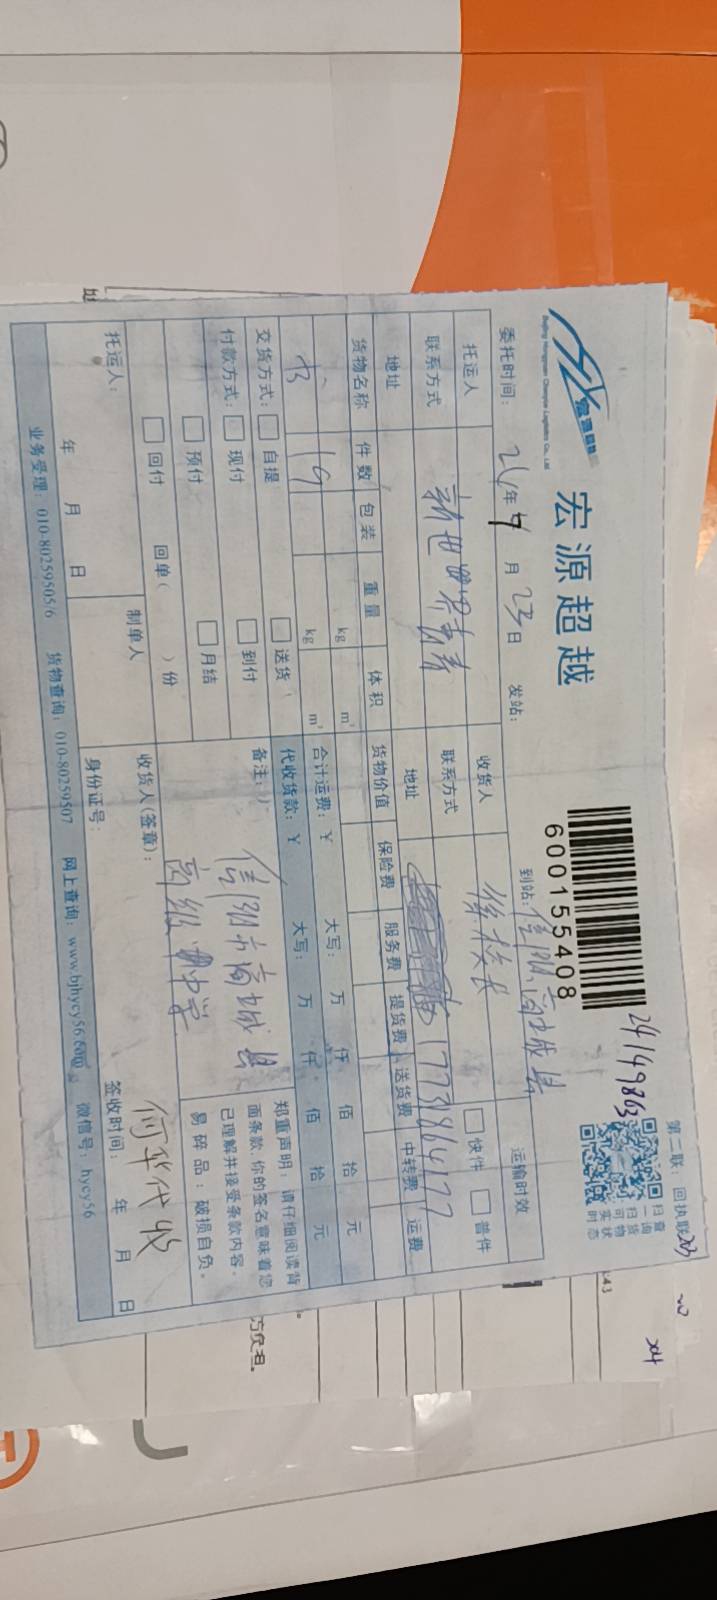 宏源超越
Beijing Hongyuan Chaoyue Logistics Co., Ltd
600155408
24149863
第二联：回执联
扫一扫可实时
查询货物状态
委托时间：24年9月23日 发站： 到站：信阳商城县
托运人 收货人 徐校长 运输时效
联系方式 新世界青 联系方式 快件 普件
地址 地址 17738641
货物名称 件数 包装 重量 体积 货物价值 保险费 服务费 提货费 送货费 中转费 运费
kg m³ 合计运费：￥ 大写： 万 仟 佰 拾 元
书 19 kg m³ 代收货款：￥ 大写： 万 仟 佰 拾 元
交货方式： 自提 送货 备注： 信阳市商城县
付款方式： 现付 到付 高级中学
预付 月结
回付 回单（ ）份
郑重声明：请仔细阅读背
面条款，你的签名意味着您
已理解并接受条款内容。
易碎品：破损自负。
托运人： 制单人 收货人(签章)： 何华代收
年 月 日 身份证号： 签收时间： 年 月 日
业务受理：010-80259505/6 货物查询：010-80259507 网上查询：www.bjhycy56.com 微信号：hycy56
方负担.